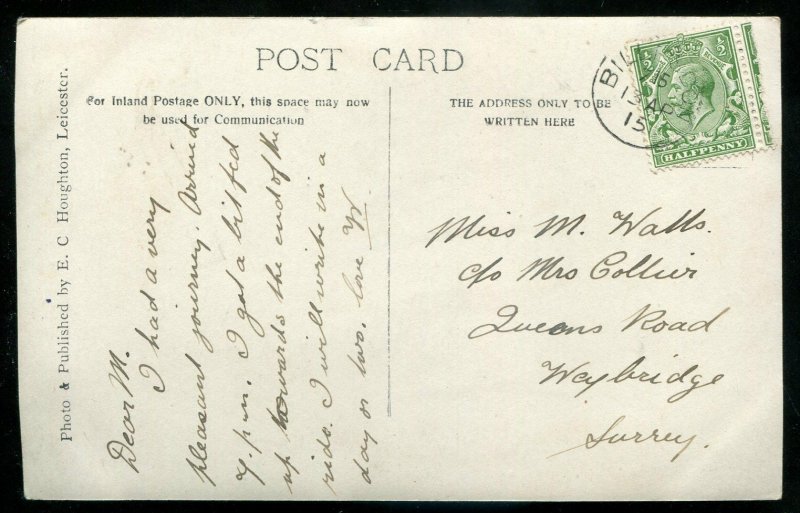 POST CARD
For Inland Postage ONLY, this space may now
be used for Communication
THE ADDRESS ONLY TO BE
WRITTEN HERE
Photo & Published by E. C Houghton, Leicester.
Dear M.
I had a very
pleasant journey. Arrived
7. p.m. I got a bit fed
up towards the end of the
ride. I will write in a
day or two. love
Miss M. Watts.
c/o Mrs Collier
Queens Road
Weybridge
Surrey.
½
½
REVENUE
HALFPENNY
15
AP
15